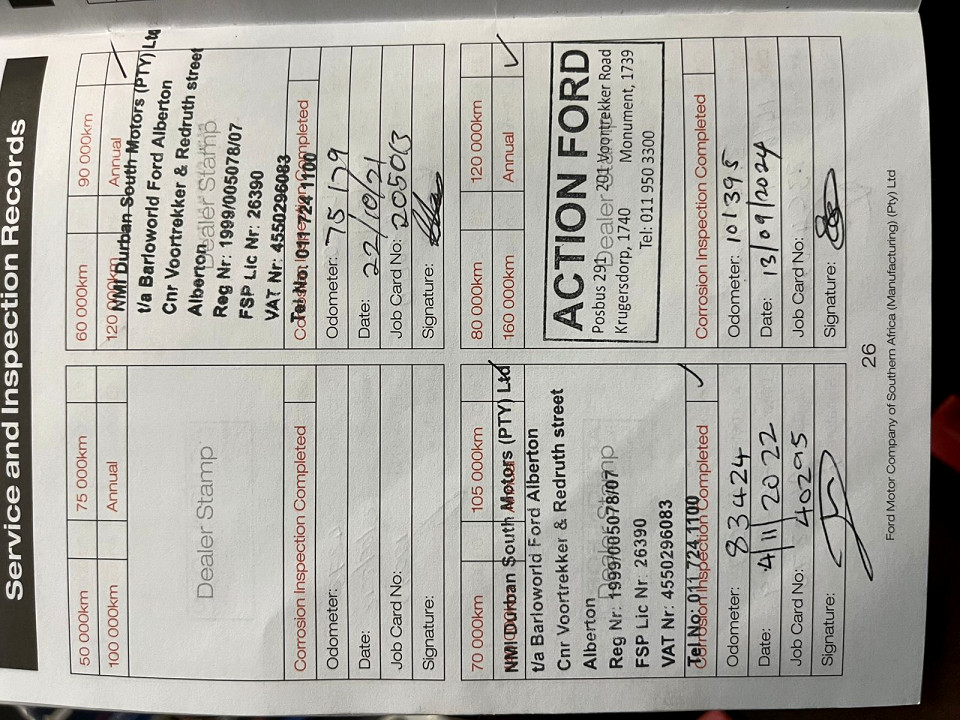 Service and Inspection Records
50 000km 75 000km
100 000km Annual
Dealer Stamp
Corrosion Inspection Completed
Odometer:
Date:
Job Card No:
Signature:
60 000km 90 000km
120 000km Annual ✓
NMI Durban South Motors (PTY) Ltd
t/a Barloworld Ford Alberton
Cnr Voortrekker & Redruth street
Alberton
Dealer Stamp
Reg Nr: 1999/005078/07
FSP Lic Nr: 26390
VAT Nr: 4550296083
Tel No: 011 724 1100
Corrosion Inspection Completed
Odometer: 75 179
Date: 22/10/21
Job Card No: 205013
Signature:
70 000km 105 000km
Annual
NMI Durban South Motors (PTY) Ltd
t/a Barloworld Ford Alberton
Cnr Voortrekker & Redruth street
Alberton
Dealer Stamp
Reg Nr: 1999/005078/07
FSP Lic Nr: 26390
VAT Nr: 4550296083
Tel No: 011 724 1100
Corrosion Inspection Completed ✓
Odometer: 83424
Date: 4/11/2022
Job Card No: 40295
Signature:
80 000km 120 000km
160 000km Annual ✓
ACTION FORD
Posbus 291 201 Voortrekker Road
Dealer Stamp
Krugersdorp, 1740 Monument, 1739
Tel: 011 950 3300
Corrosion Inspection Completed
Odometer: 101395
Date: 13/09/2024
Job Card No:
Signature:
26
Ford Motor Company of Southern Africa (Manufacturing) (Pty) Ltd